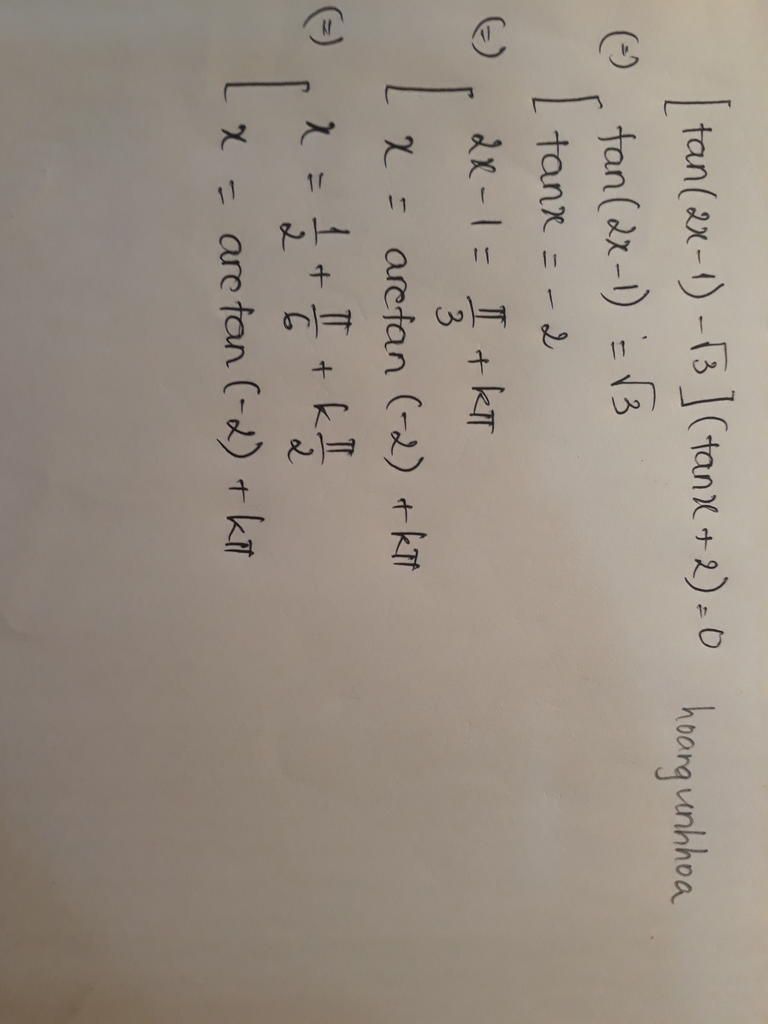 [tan(2x-1) - √3](tanx + 2) = 0 hoangunhhoa
(=) [ tan(2x-1) = √3
tanx = -2
(=) [ 2x - 1 = π/3 + kπ
x = arctan(-2) + kπ
(=) [ x = 1/2 + π/6 + k π/2
x = arctan(-2) + kπ